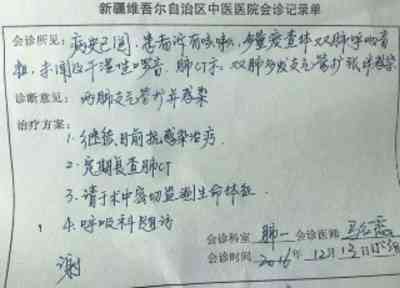 新疆维吾尔自治区中医医院会诊记录单
会诊所见：病史已阅，患者诉有咳嗽，少量痰，查体双肺呼吸音
粗，未闻及干湿性啰音。肺CT示：双肺多发支气管扩张伴感染
诊断意见：两肺支气管扩张并感染
治疗方案：
1.继续目前抗感染治疗。
2.定期复查肺CT
3.请于术中密切监测生命体征
4.呼吸科随访
谢
会诊科室 肺一 会诊医师
会诊时间 2016年12月13日